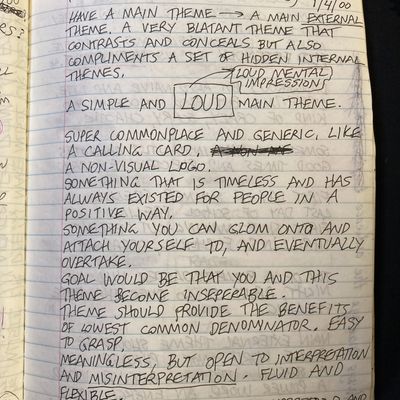 1/4/00
HAVE A MAIN THEME → A MAIN EXTERNAL
THEME. A VERY BLATANT THEME THAT
CONTRASTS AND CONCEALS BUT ALSO
COMPLIMENTS A SET OF HIDDEN INTERNAL
THEMES.
LOUD MENTAL
IMPRESSION
A SIMPLE AND LOUD MAIN THEME.
SUPER COMMONPLACE AND GENERIC, LIKE
A CALLING CARD.
A NON-VISUAL LOGO.
SOMETHING THAT IS TIMELESS AND HAS
ALWAYS EXISTED FOR PEOPLE IN A
POSITIVE WAY.
SOMETHING YOU CAN GLOM ONTO AND
ATTACH YOURSELF TO, AND EVENTUALLY
OVERTAKE.
GOAL WOULD BE THAT YOU AND THIS
THEME BECOME INSEPERABLE.
THEME SHOULD PROVIDE THE BENEFITS
OF LOWEST COMMON DENOMINATOR. EASY
TO GRASP.
MEANINGLESS, BUT OPEN TO INTERPRETATION
AND MISINTERPRETATION. FLUID AND
FLEXIBLE.